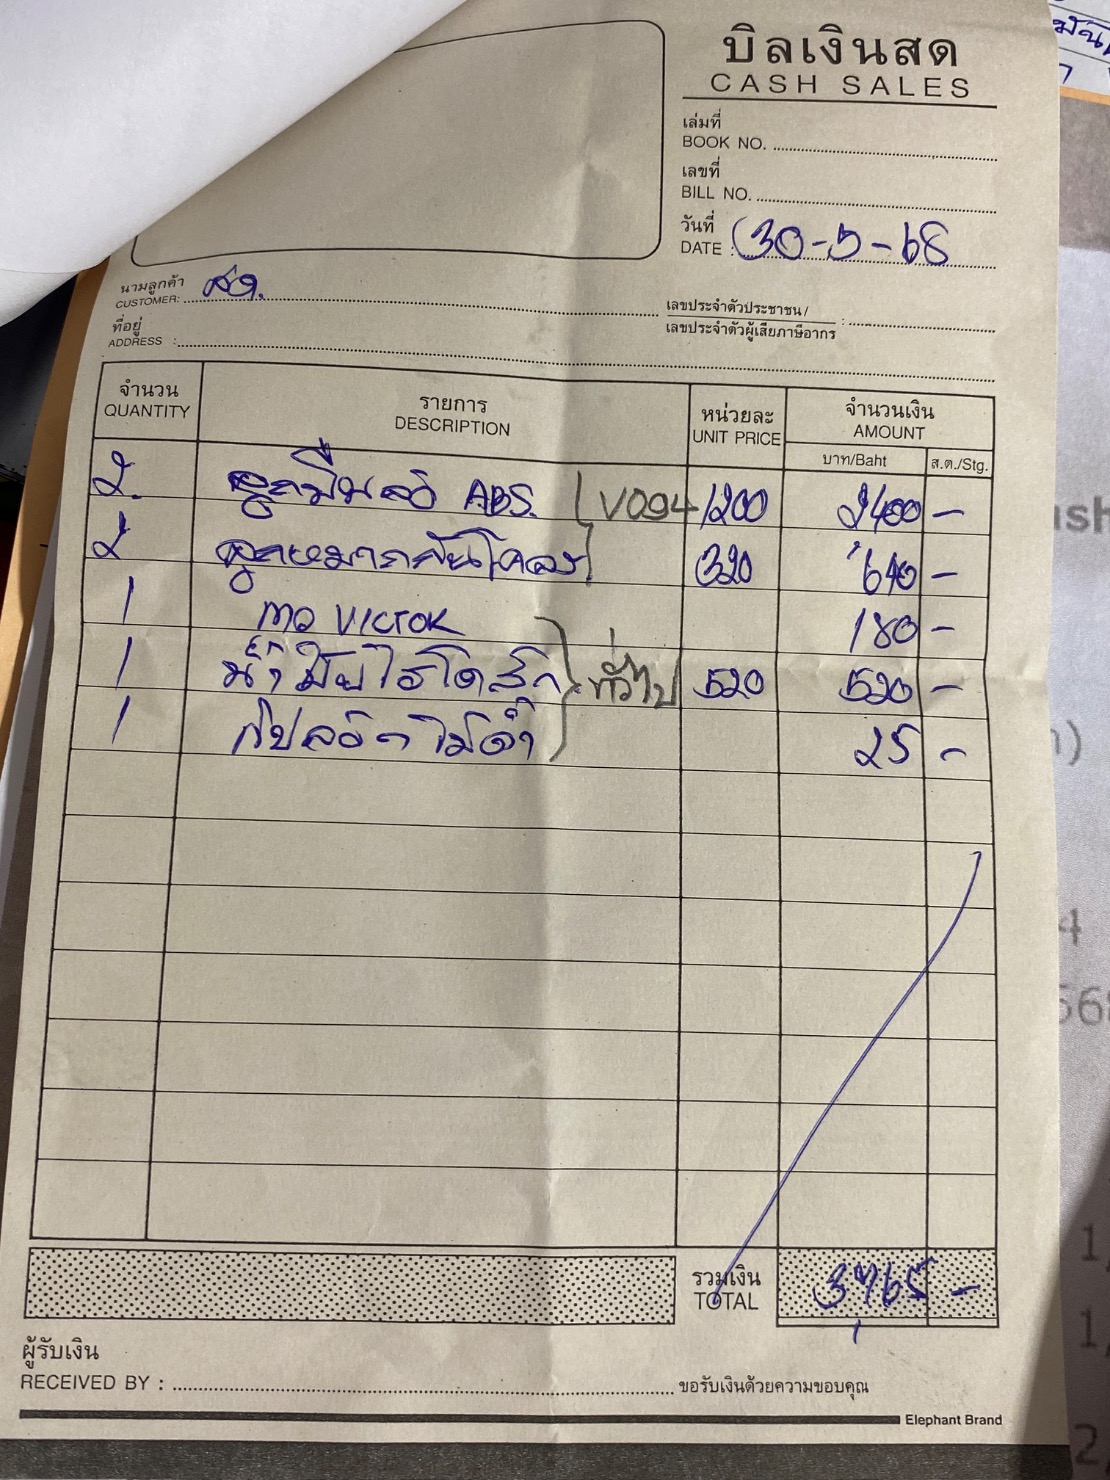 บิลเงินสด
CASH SALES
เล่มที่
BOOK NO.
เลขที่
BILL NO.
วันที่
DATE : 30-5-68
นามลูกค้า
CUSTOMER: สด.
ที่อยู่
ADDRESS :
เลขประจำตัวประชาชน /
เลขประจำตัวผู้เสียภาษีอากร :
จำนวน QUANTITY รายการ DESCRIPTION หน่วยละ UNIT PRICE จำนวนเงิน AMOUNT
บาท/Baht ส.ต./Stg.
2. ลูกปืนล้อ ABS. V094 1200 2400 -
2 ลูกหมากกันโคลง 320 640 -
1 กาว VICTOR 180 -
1 น้ำมันไฮโดรลิก ทั่วไป 520 520 -
1 25 -
รวมเงิน
TOTAL 3765 -
ผู้รับเงิน
RECEIVED BY : ขอรับเงินด้วยความขอบคุณ
Elephant Brand